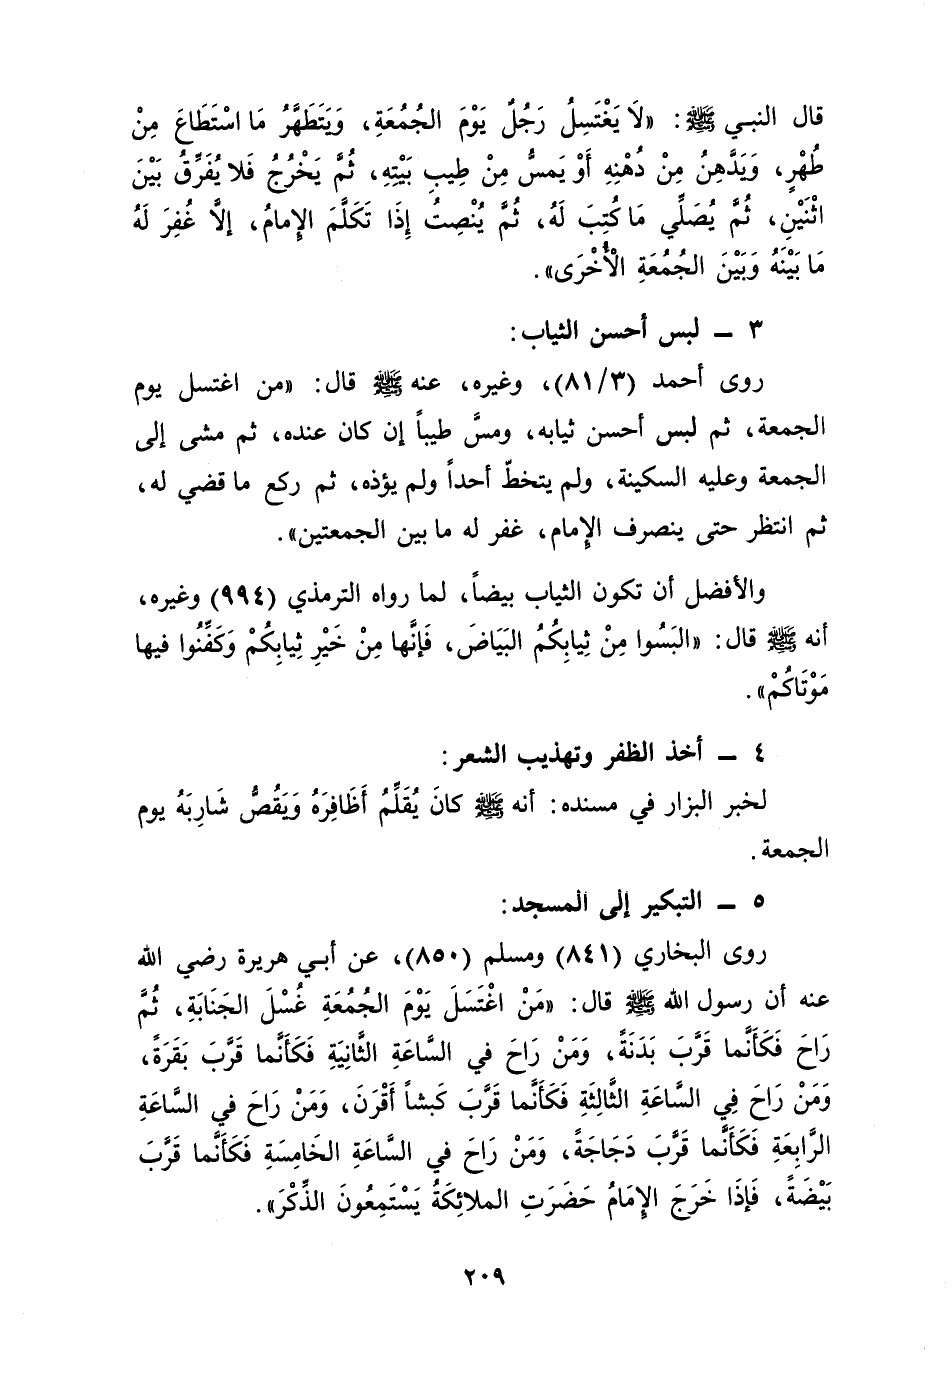 قال النبـي ﷺ: «لَا يَغْتَسِلُ رَجُلٌ يَوْمَ الجُمُعَةِ، وَيَتَطَهَّرُ مَا اسْتَطَاعَ مِنْ
طُهْرٍ، وَيَدَّهِنُ مِنْ دُهْنِهِ أَوْ يَمسُّ مِنْ طِيبِ بَيْتِهِ، ثُمَّ يَخْرُجُ فَلا يُفَرِّقُ بَيْنَ
اثْنَيْنِ، ثُمَّ يُصَلِّي مَا كُتِبَ لَهُ، ثُمَّ يُنْصِتُ إِذَا تَكَلَّمَ الإِمامُ، إلَّا غُفِرَ لَهُ
مَا بَيْنَهُ وَبَيْنَ الجُمُعَةِ الْأُخْرَى».
٣ ــ لبس أحسن الثياب:
روى أحمد (٨١/٣)، وغيره، عنه ﷺ قال: «من اغتسل يوم
الجمعة، ثم لبس أحسن ثيابه، ومسَّ طيباً إن كان عنده، ثم مشى إلى
الجمعة وعليه السكينة، ولم يتخطّ أحداً ولم يؤذه، ثم ركع ما قضي له،
ثم انتظر حتى ينصرف الإِمام، غفر له ما بين الجمعتين».
والأفضل أن تكون الثياب بيضاً، لما رواه الترمذي (٩٩٤) وغيره،
أنه ﷺ قال: «البَسُوا مِنْ ثِيابِكُمُ البَيَاضَ، فَإِنَّها مِنْ خَيْرِ ثِيابِكُمْ وَكَفِّنُوا فيها
مَوْتَاكُمْ».
٤ ــ أخذ الظفر وتهذيب الشعر:
لخبر البزار في مسنده: أنه ﷺ كانَ يُقَلِّمُ أَظَافِرَهُ وَيَقُصُّ شَارِبَهُ يوم
الجمعة.
٥ ــ التبكير إلى المسجد:
روى البخاري (٨٤١) ومسلم (٨٥٠)، عن أبـي هريرة رضي الله
عنه أن رسول الله ﷺ قال: «مَنْ اغْتَسَلَ يَوْمَ الجُمُعَةِ غُسْلَ الجَنَابَةِ، ثُمَّ
رَاحَ فَكَأَنَّما قَرَّبَ بَدَنَةً، وَمَنْ رَاحَ في السَّاعَةِ الثَّانِيَةِ فَكَأَنَّما قَرَّبَ بَقَرَةً،
وَمَنْ رَاحَ فِي السَّاعَةِ الثَّالِثَةِ فَكَأَنَّما قَرَّبَ كَبشاً أَقْرَنَ، وَمَنْ رَاحَ في السَّاعَةِ
الرَّابِعَةِ فَكَأَنَّما قَرَّبَ دَجَاجَةً، وَمَنْ رَاحَ في السَّاعَةِ الخَامِسَةِ فَكَأَنَّما قَرَّبَ
بَيْضَةً، فَإِذَا خَرَجَ الإِمَامُ حَضَرَتِ الملائِكَةُ يَسْتَمِعُونَ الذِّكْرَ».
٢٠٩